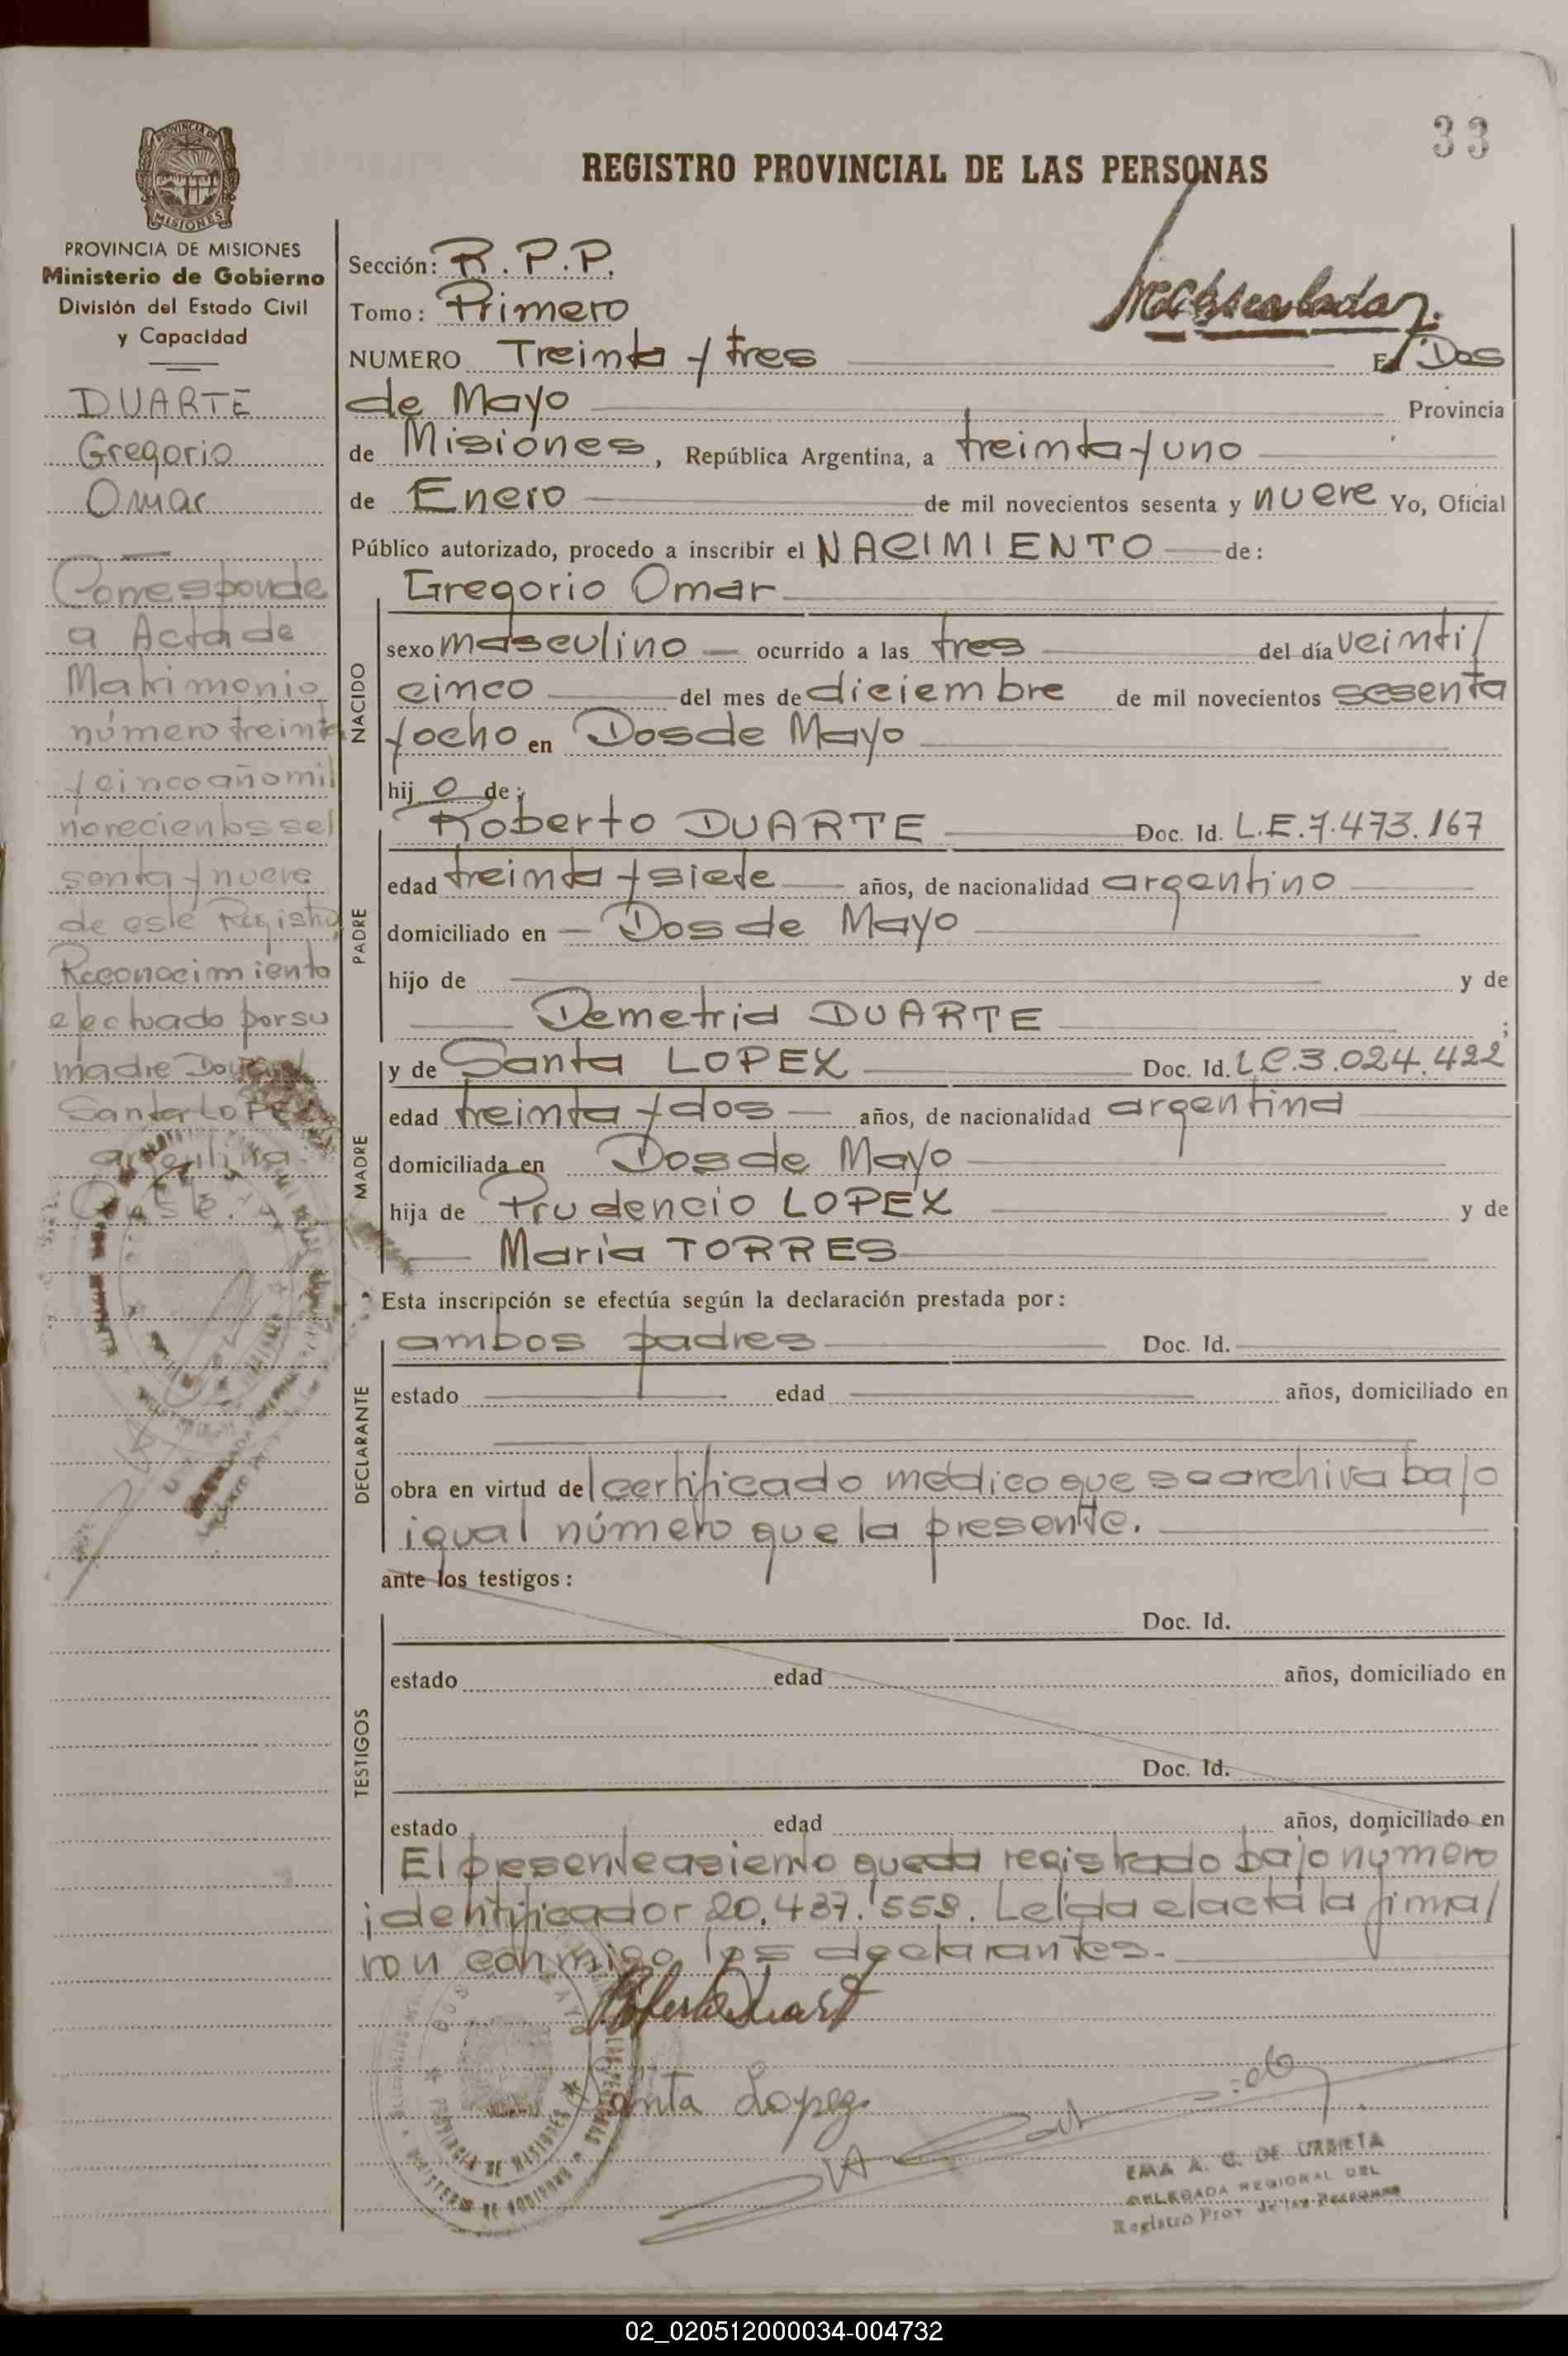 33
REGISTRO PROVINCIAL DE LAS PERSONAS
PROVINCIA DE MISIONES
Ministerio de Gobierno
División del Estado Civil
y Capacidad
DUARTE
Gregorio
Omar
Corresponde
a Acta de
Matrimonio
número treinta
y cinco año mil
novecientos se/
senta y nueve
de este Registro
Reconocimiento
efectuado por su
madre Doña
Santa LOPEZ
argentina.
Conste.
Sección: R.P.P.
Tomo: Primero
NUMERO Treinta y tres En Dos
de Mayo Provincia
de Misiones, República Argentina, a treinta y uno
de Enero de mil novecientos sesenta y nueve Yo, Oficial
Público autorizado, procedo a inscribir el NACIMIENTO de:
Gregorio Omar
NACIDO
sexo masculino ocurrido a las tres del día veinti/
cinco del mes de diciembre de mil novecientos sesenta
y ocho en Dos de Mayo
hijo de:
PADRE
Roberto DUARTE Doc. Id. L.E.7.473.167
edad treinta y siete años, de nacionalidad argentino
domiciliado en Dos de Mayo
hijo de y de
Demetria DUARTE ;
MADRE
y de Santa LOPEZ Doc. Id. L.C.3.024.422
edad treinta y dos años, de nacionalidad argentina
domiciliada en Dos de Mayo
hija de Prudencio LOPEZ y de
Maria TORRES
Esta inscripción se efectúa según la declaración prestada por:
DECLARANTE
ambos padres Doc. Id.
estado edad años, domiciliado en
obra en virtud del certificado médico que se archiva bajo
igual número que la presente.
ante los testigos:
TESTIGOS
Doc. Id.
estado edad años, domiciliado en
Doc. Id.
estado edad años, domiciliado en
El presente asiento queda registrado bajo número
identificador 20.437.558. Leída el acta la firma/
ron conmigo los declarantes.
Roberto Duarte
Santa Lopez
EMA A. C. DE URRETA
DELEGADA REGIONAL DEL
Registro Prov. de las Personas
02_020512000034-004732